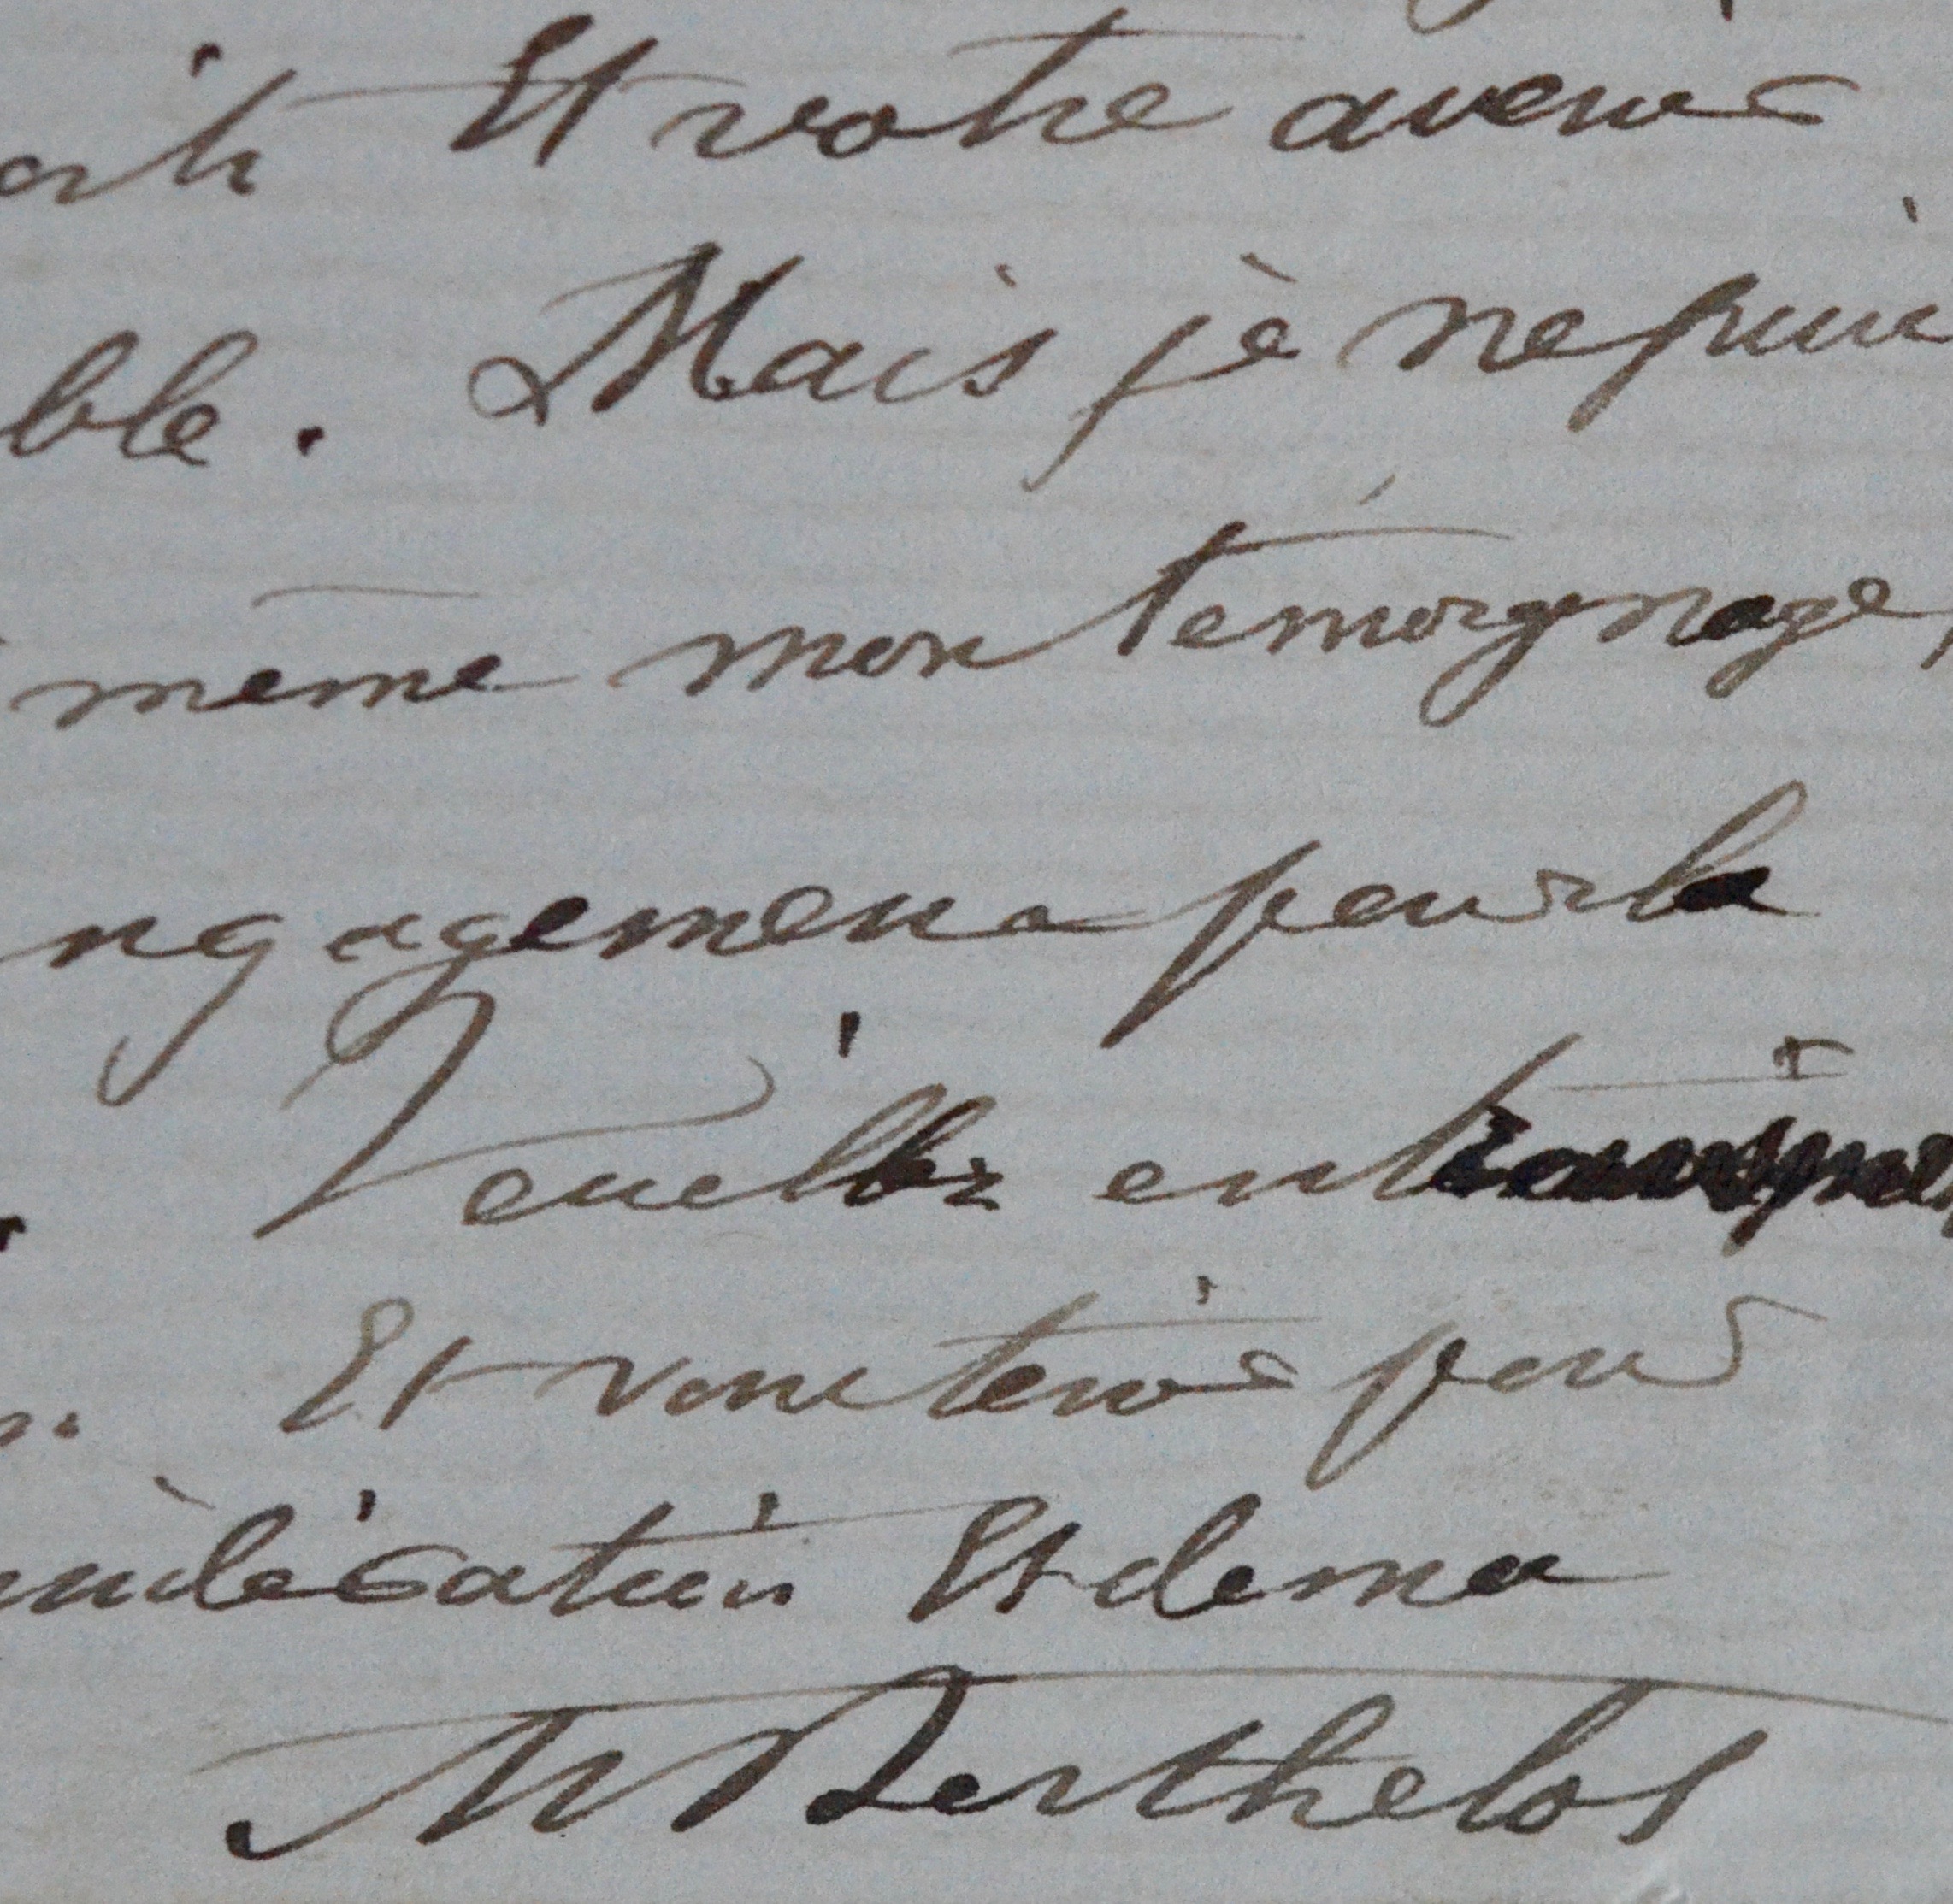 Et votre avenir
ble. Mais je ne puis
même mon témoignage,
ngagement pour la
Veuillez en
Et vous tenir pour
Et de ma
M Berthelot